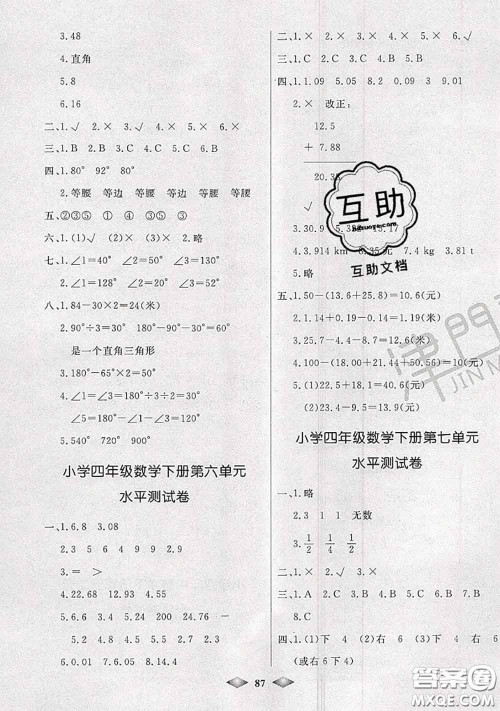 3.48
4.直角
5.8
6.16
二、1.√ 2.× 3.√ 4.× 5.×
三、1.B 2.B 3.C 4.B 5.C
四、1.80° 92° 80°
2.等腰 等边 等腰 等边 等腰
五、②③⑤ ① ④ ③⑤
六、1.(1)√ (2)× (3)× 2.略
七、1.∠1=40° ∠2=60° ∠3=120°
2.∠1=128° ∠2=82° ∠3=82°
八、1.84-30×2=24(米)
2.90°÷3=30° 180°÷2=90°
是一个直角三角形
3.180°-65°×2=50°
4.∠1=∠2=∠3=180°÷3=60°
5.540° 720° 900°
小学四年级数学下册第六单元
水平测试卷
一、1.6.8 3.08
2.3 5 6 4 9 9 1
3.= > =
4.22.68 12.93 4.55
5.4.68 5.14 5.2 24.86
190 4.4
6.0.01 5.76 8.09 14.4
二、1.× 2.× 3.× 4.× 5.× 6.√
三、1.C 2.C 3.C 4.B 5.C 6.B
四、1.1.09 5.25 8.62 3 9.01
2.× 改正:
12.5
+ 7.88
20.38
3.30.9 5.3
15.17
6.35元 7.4 kg 3.81 t
5.略
五、1.50-(13.6+25.8)=10.6(元)
2.1.14+0.19-0.14=1.19(米)
3.27.2-4.4-8.7+12.6(米)
4.100-(18.6+24.9)=10.6(元)
5.(1)22.5+18.1=42.8(元)
(2)33.4-24.8=8.6(元)
小学四年级数学下册第七单元
水平测试卷
一、1.略
2.3 1 1 无数
3.1/2 1/4 1/2
二、1.× 2.√ 3.× 4.×
三、1.A 2.C 3.B 4.B 5.B 6.A 7.B
8.C
四、1.(1)下 4 (2)右 6 (3)下 4 右 6
(或右6下4)
87
互助
互助文档
津門
JIN
答案圈
MXQE.COM